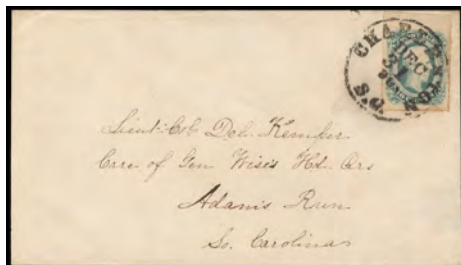 CHARLESTON
DEC
31
S.C.
Lieut: Col: Del. Kemper
Care of Gen Wise's Hd. Qrs
Adams Run
So. Carolina